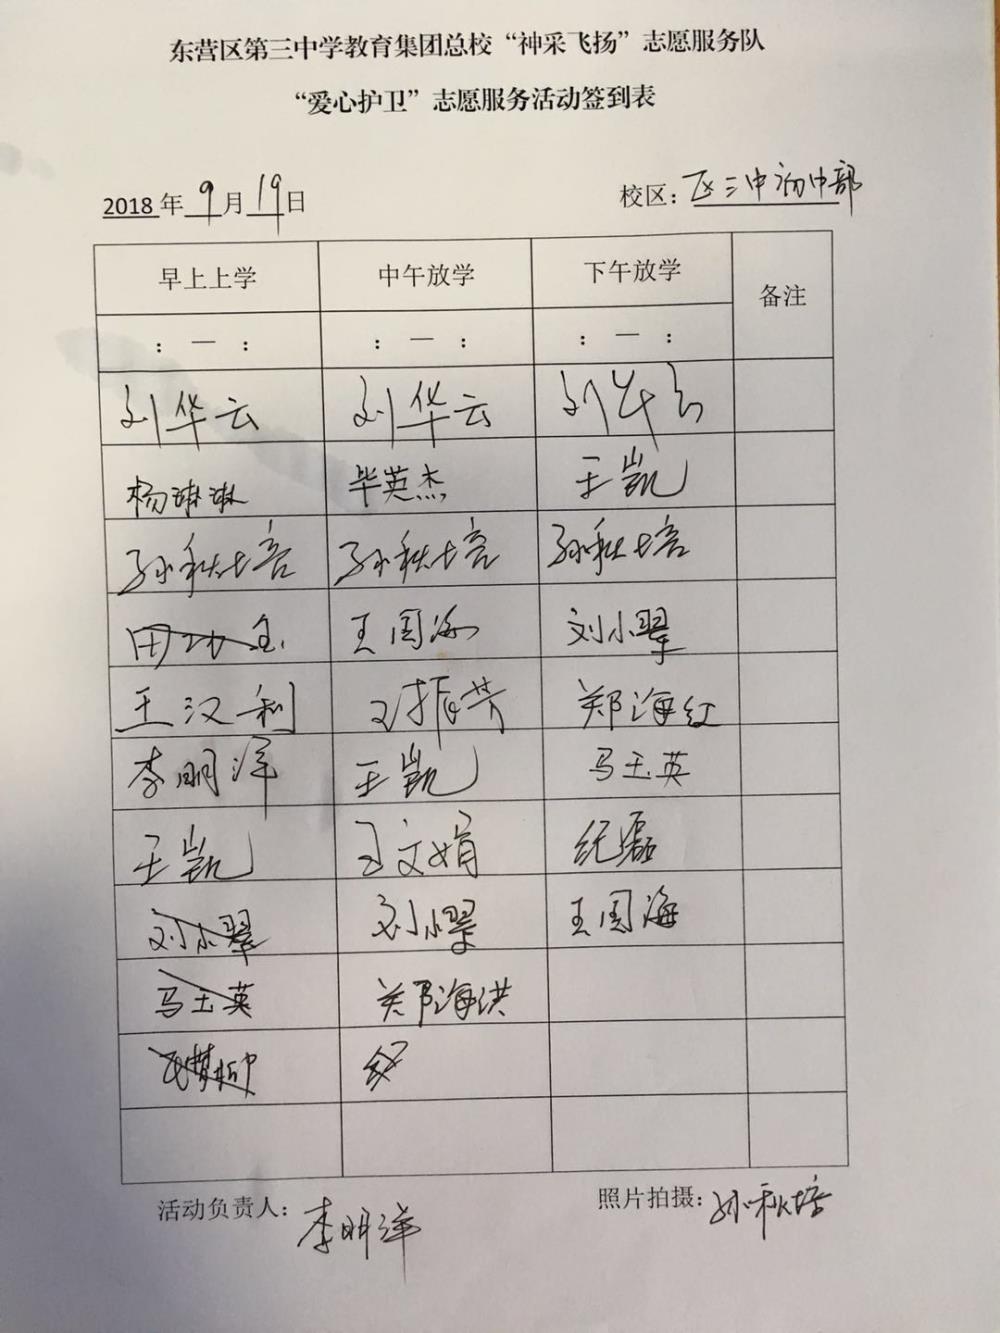 东营区第三中学教育集团总校“神采飞扬”志愿服务队
“爱心护卫”志愿服务活动签到表
2018年9月19日 校区：区三中初中部
早上上学 中午放学 下午放学 备注
：— ： ：— ： ：— ：
刘华云 刘华云 刘华云
杨琳琳 毕英杰 王凯
孙秋培 孙秋培 孙秋培
田 王国海 刘小翠
王汉利 振芳 郑海红
李明洋 王凯 马玉英
王凯 王文娟 纪磊
刘小翠 刘小翠 王国海
马玉英 郑海洪
活动负责人：李明洋 照片拍摄：孙秋培